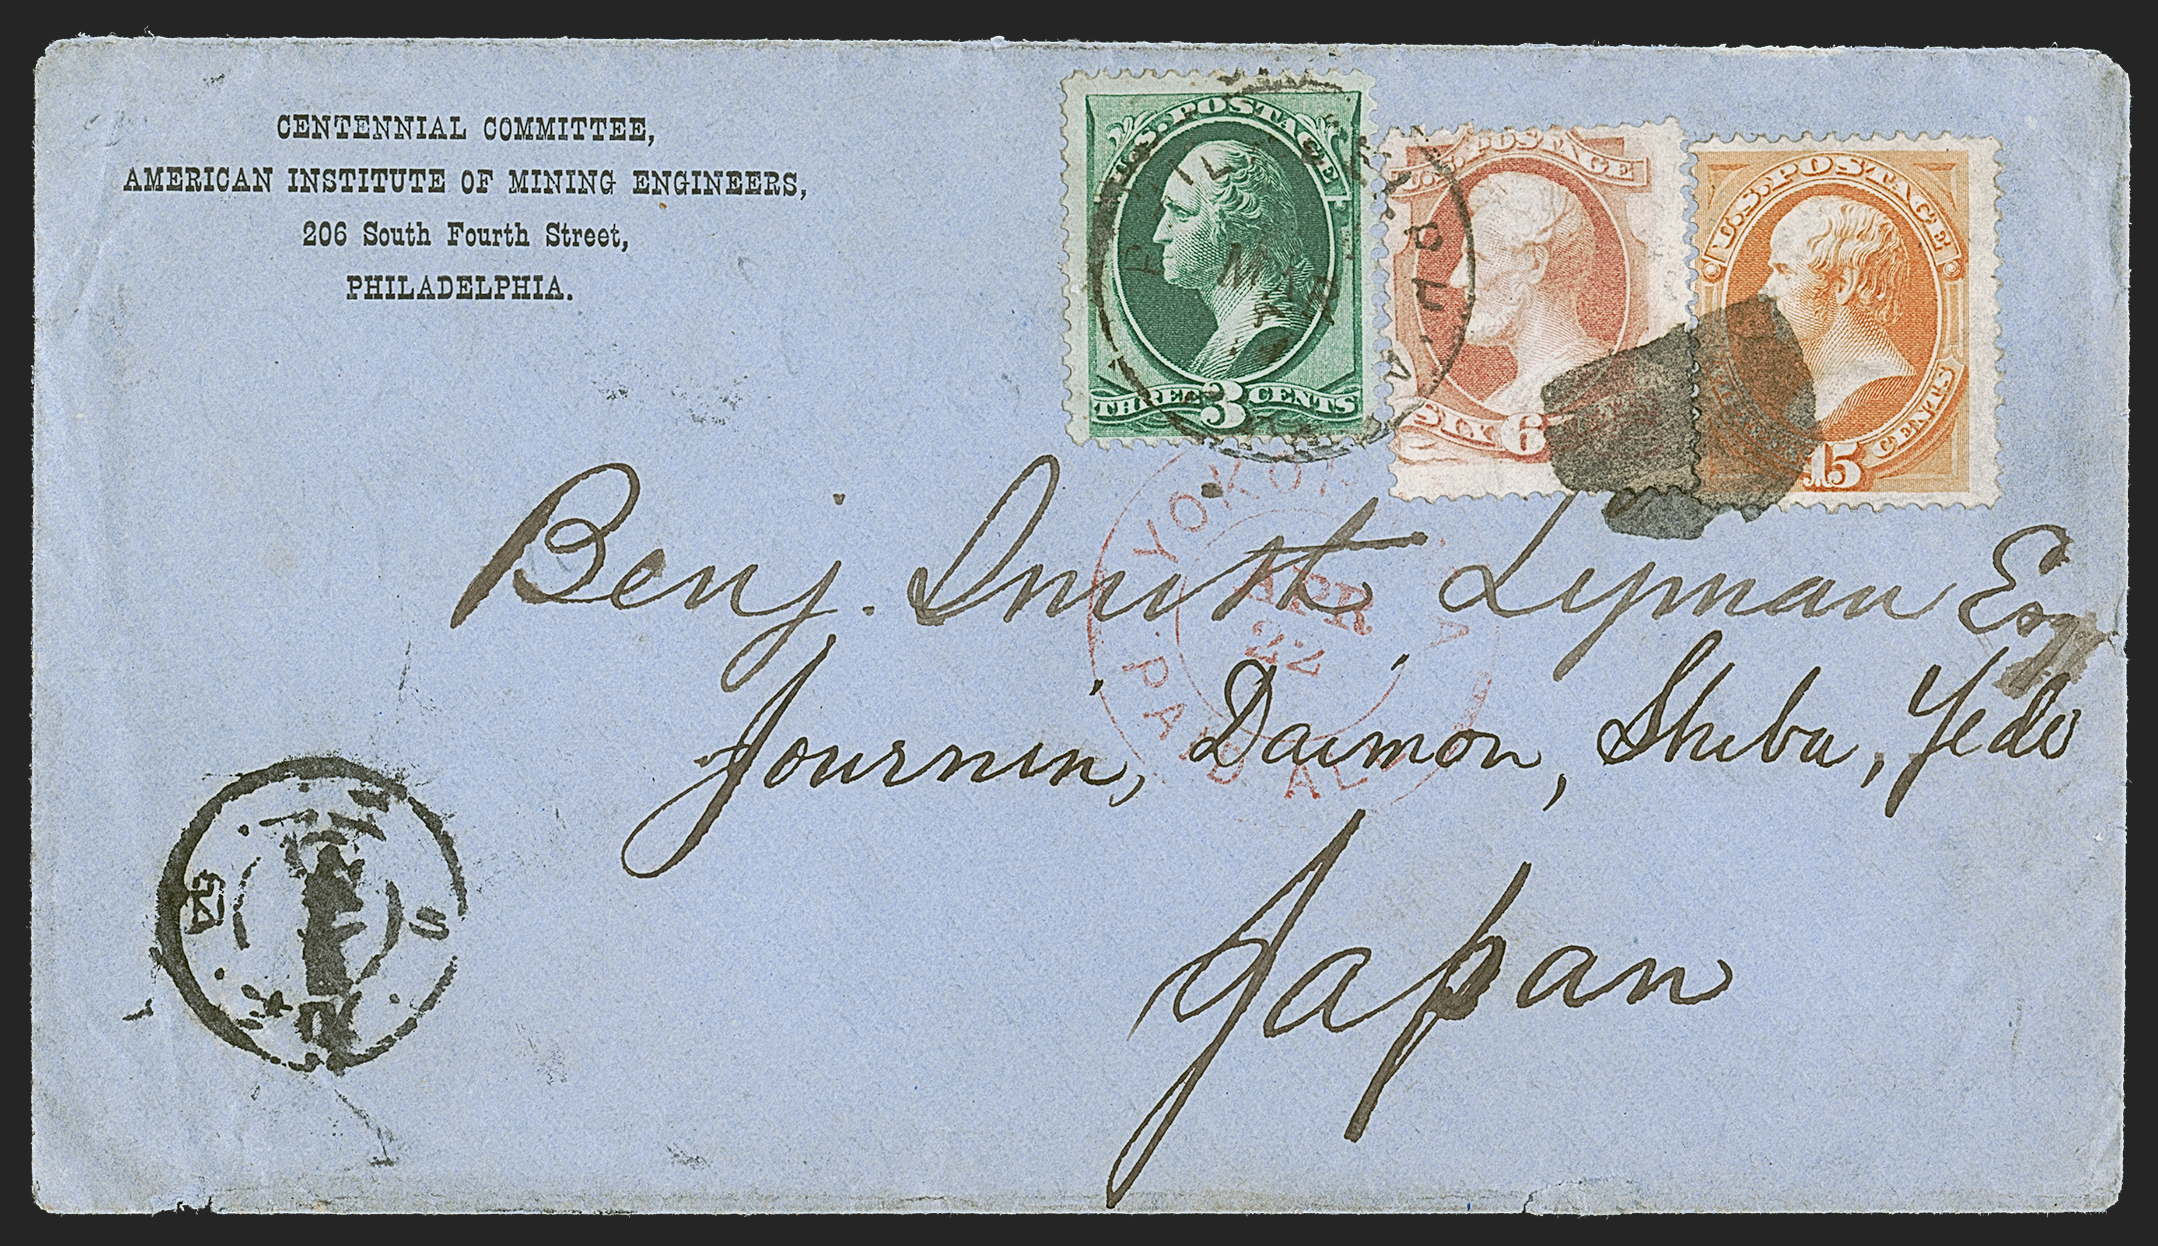 CENTENNIAL COMMITTEE,
AMERICAN INSTITUTE OF MINING ENGINEERS,
206 South Fourth Street,
PHILADELPHIA.
U.S. POSTAGE
THREE 3 CENTS
U.S. POSTAGE
SIX 6
U.S. POSTAGE
15 CENTS
PHILADELPHIA
MAR
YOKO
APR
22
PAID ALL
Benj. Smith Lyman Esq
Journin, Daimon, Shiba, Yedo
Japan